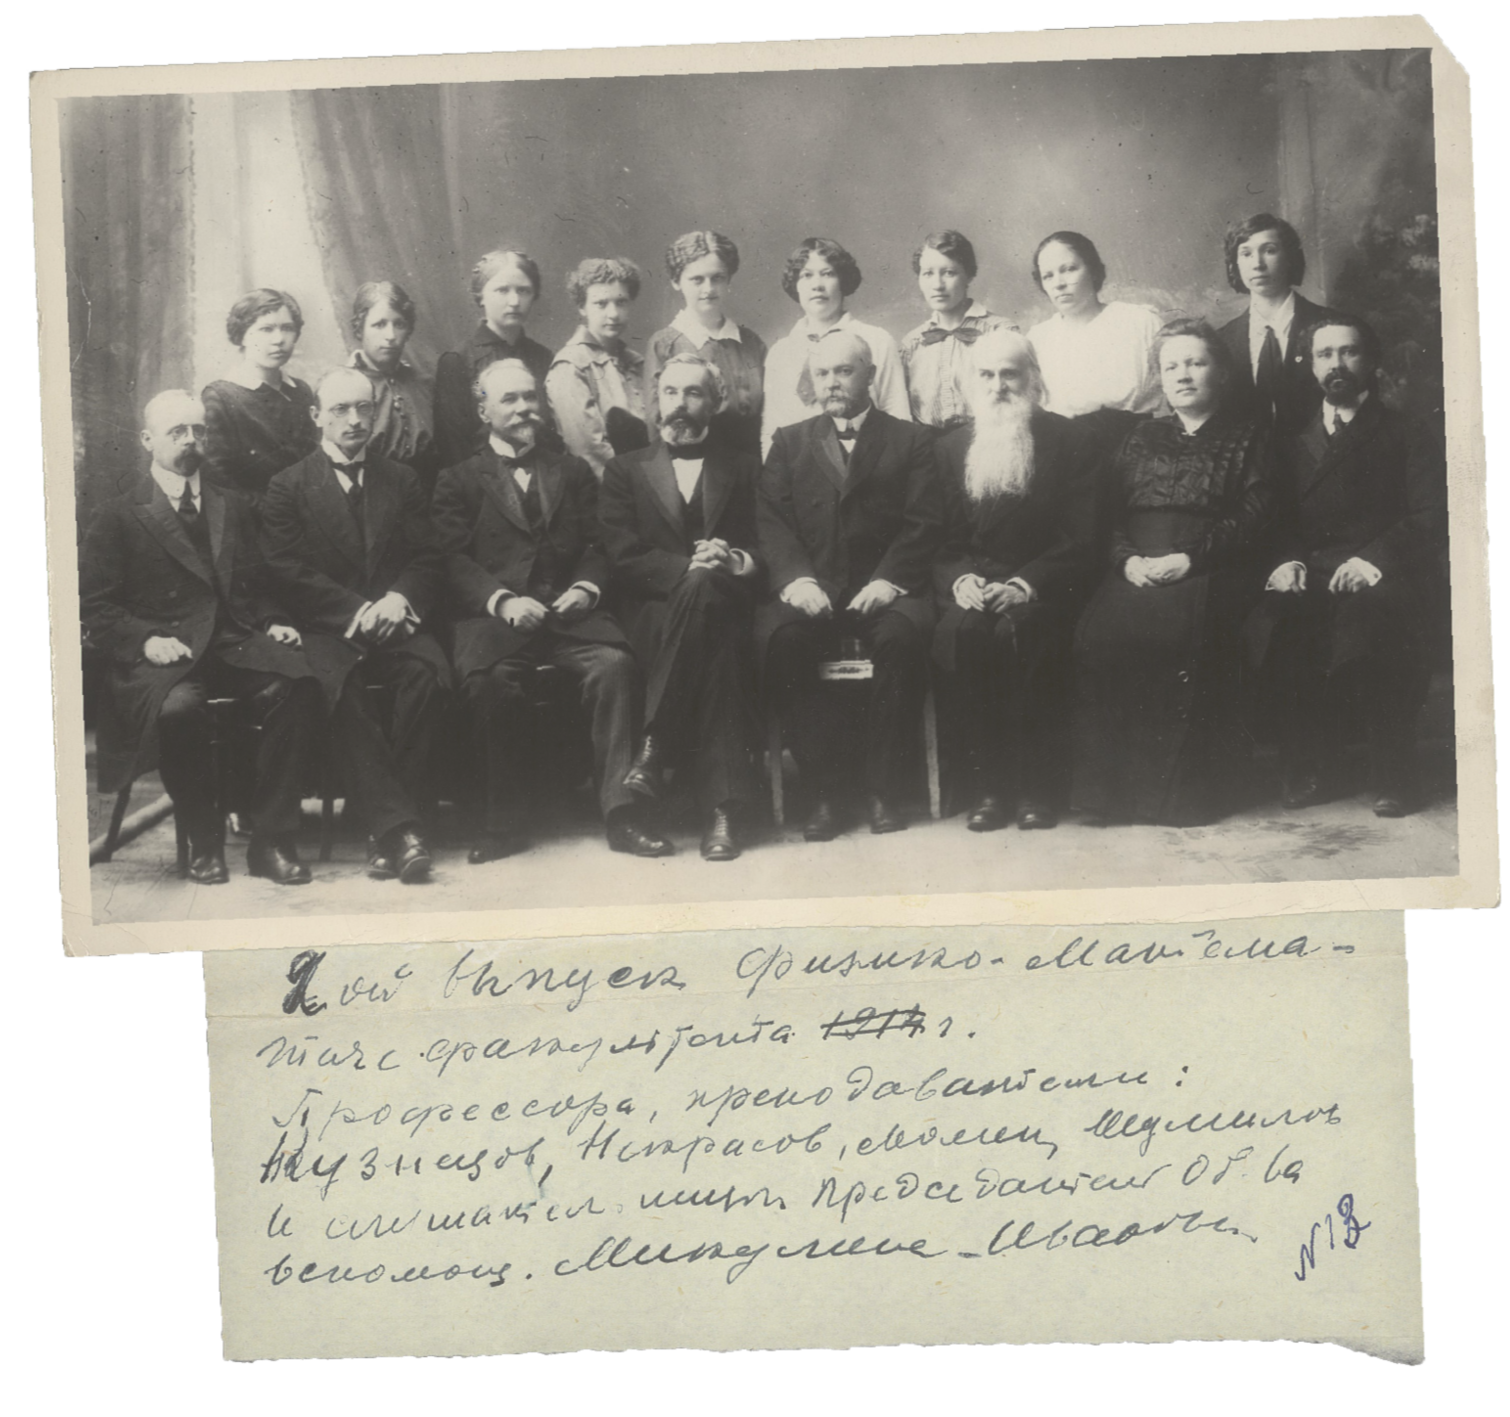 2ой выпуск Физико-Матема-
тич с. факультета 1914 г.
Профессора, преподаватели:
Кузнецов, Некрасов, Молин, Шумилов
и слушательницы председател Об-ва
вспомощ. Микулине-Иванов
N 13